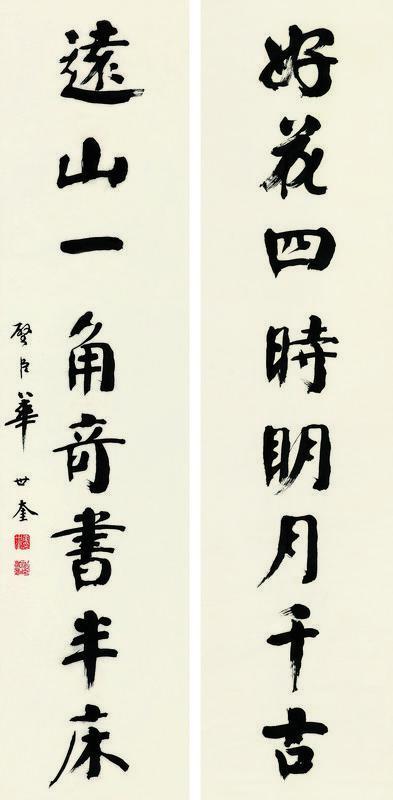 好花四時明月千古
遠山一角奇書半床
璧臣華世奎